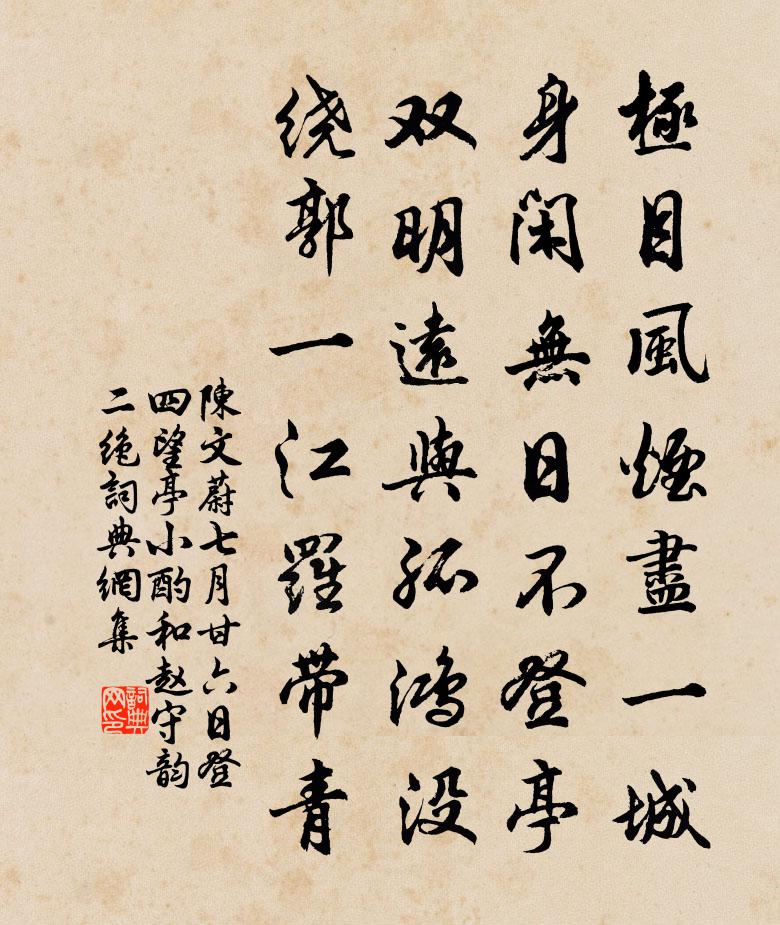 極目風煙盡一城
身閑無日不登亭
双明遠與孤鴻没
绕郭一江羅带青
陳文蔚七月廿六日登
四望亭小酌和赵守韵
二绝詞典網集
詞典
网印